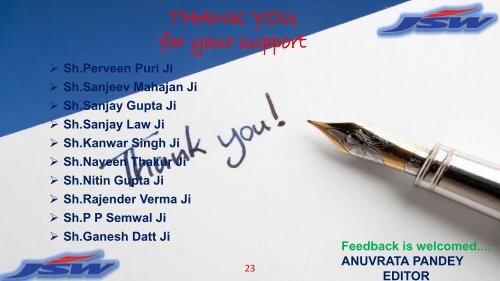 THANK YOU
for your support
JSW
➢ Sh.Perveen Puri Ji
➢ Sh.Sanjeev Mahajan Ji
➢ Sh.Sanjay Gupta Ji
➢ Sh.Sanjay Law Ji
➢ Sh.Kanwar Singh Ji
➢ Sh.Naveen Thakur Ji
➢ Sh.Nitin Gupta Ji
➢ Sh.Rajender Verma Ji
➢ Sh.P P Semwal Ji
➢ Sh.Ganesh Datt Ji
Thank you!
Feedback is welcomed....
ANUVRATA PANDEY
EDITOR
JSW
23